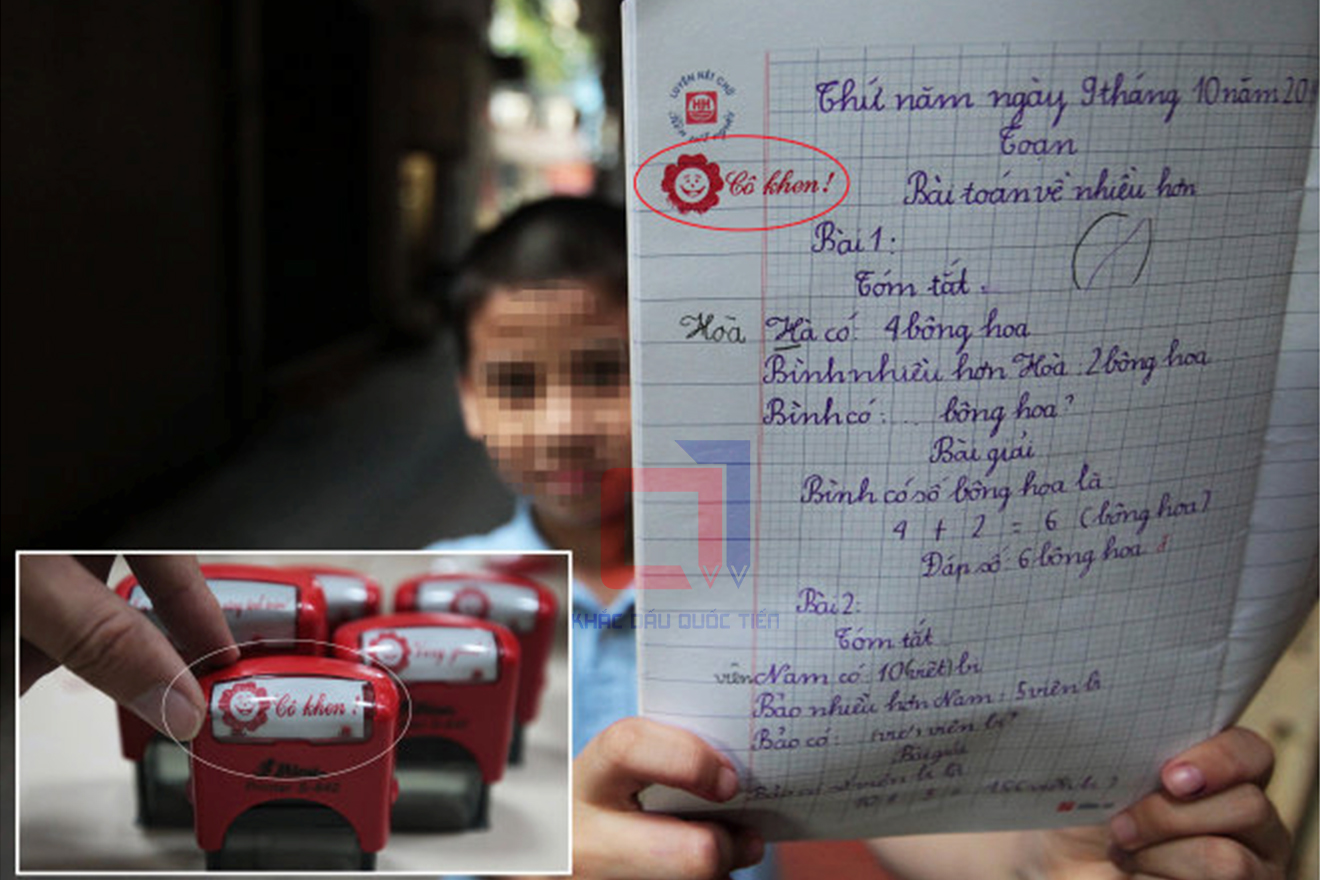 LUYỆN NÉT CHỮ
HH
Cô khen!
Thứ năm ngày 9 tháng 10 năm 20
Toán
Bài toán về nhiều hơn
Bài 1:
Tóm tắt.
Hoà Hà có: 4 bông hoa
Bình nhiều hơn Hoà: 2 bông hoa
Bình có: ... bông hoa?
Bài giải
Bình có số bông hoa là:
4 + 2 = 6 (bông hoa)
Đáp số: 6 bông hoa
Bài 2:
Tóm tắt
viên Nam có: 10 (viết) bi
Bảo nhiều hơn Nam: 5 viên bi
Bảo có: viên bi?
Bài giải
KHẮC DẤU QUỐC TIẾN
Cô khen!
Shiny
Printer S-842